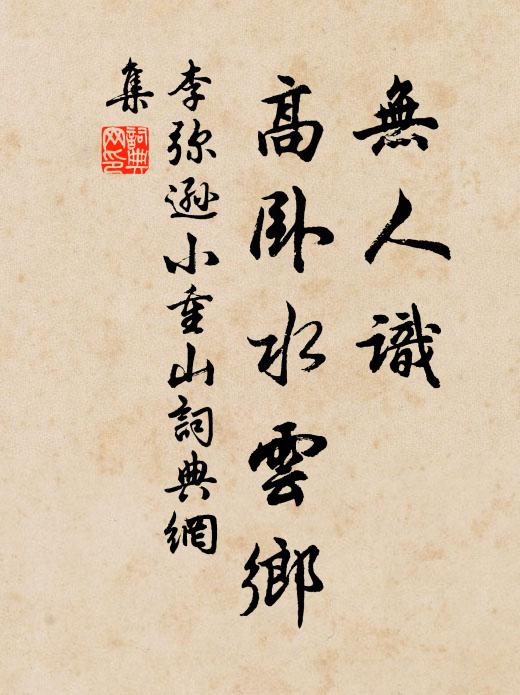 無人識
高卧水雲鄉
李弥遜小重山詞典網
集
詞典
网印